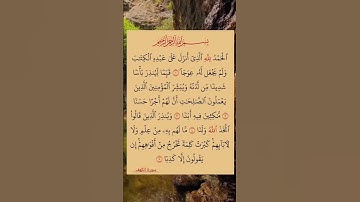 بسم الله الرحمن الرحيم
ٱلْحَمْدُ لِلَّهِ ٱلَّذِىٓ أَنزَلَ عَلَىٰ عَبْدِهِ ٱلْكِتَٰبَ
وَلَمْ يَجْعَل لَّهُۥ عِوَجَا ۜ ١ قَيِّمًا لِّيُنذِرَ بَأْسًا
شَدِيدًا مِّن لَّدُنْهُ وَيُبَشِّرَ ٱلْمُؤْمِنِينَ ٱلَّذِينَ
يَعْمَلُونَ ٱلصَّٰلِحَٰتِ أَنَّ لَهُمْ أَجْرًا حَسَنًا
٢ مَّٰكِثِينَ فِيهِ أَبَدًا ٣ وَيُنذِرَ ٱلَّذِينَ قَالُوا۟
ٱتَّخَذَ ٱللَّهُ وَلَدًا ٤ مَّا لَهُم بِهِۦ مِنْ عِلْمٍ وَلَا
لِـَٔابَآئِهِمْ كَبُرَتْ كَلِمَةً تَخْرُجُ مِنْ أَفْوَٰهِهِمْ إِن
يَقُولُونَ إِلَّا كَذِبًا ٥
سورة الكهف